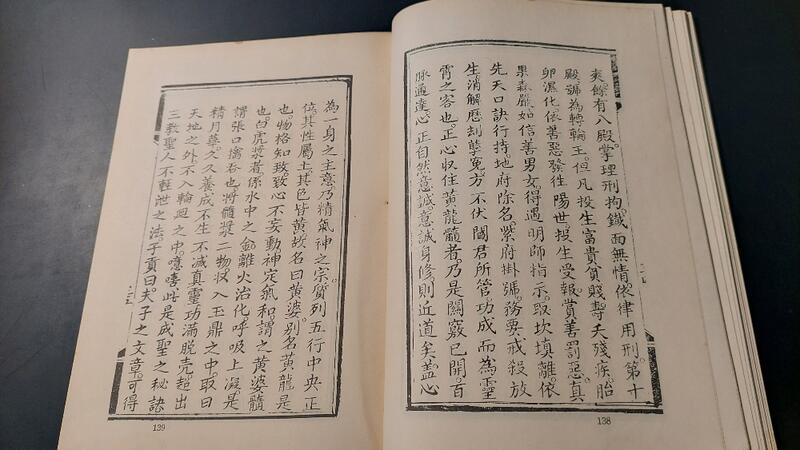 爽。餘有八殿。掌理刑拘。鐵面無情。依律用刑。第十
殿。號為轉輪王。但凡投生富貴貧賤。壽夭殘疾。胎
卵濕化。依善惡發往陽世。投生受報。賞善罰惡。真
果森嚴。如信善男女。得遇明師指示。取坎填離。依
先天口訣行持。地府除名。紫府掛號。務要戒殺放
生。消解歷劫孽冤。方不伏閻君所管。功成而為靈
霄之客也。正心收住黃龍髓者。乃是關竅已開。百
脉通達。心正自然意誠。意誠身修則近道矣。蓋心
二十
138
為一身之主。意乃精氣神之宗。質列五行中央正
位。其性屬土。其色皆黃。故名曰黃婆。別名黃龍是
也。物格知致。致心不妄動。神定氣和。謂之黃婆髓
也。白虎漿者。係水中之金。離火治化。呼吸上凝。是
謂張口擒吞也。將髓漿二物。收入玉鼎之中。取日
精月華。久久養成不生不滅真靈。功滿脫壳。超出
天地之外。不入輪廻之中。噫嘻。此是成聖之秘訣
三教聖人不輕泄之法。子貢曰。夫子之文章。可得
139